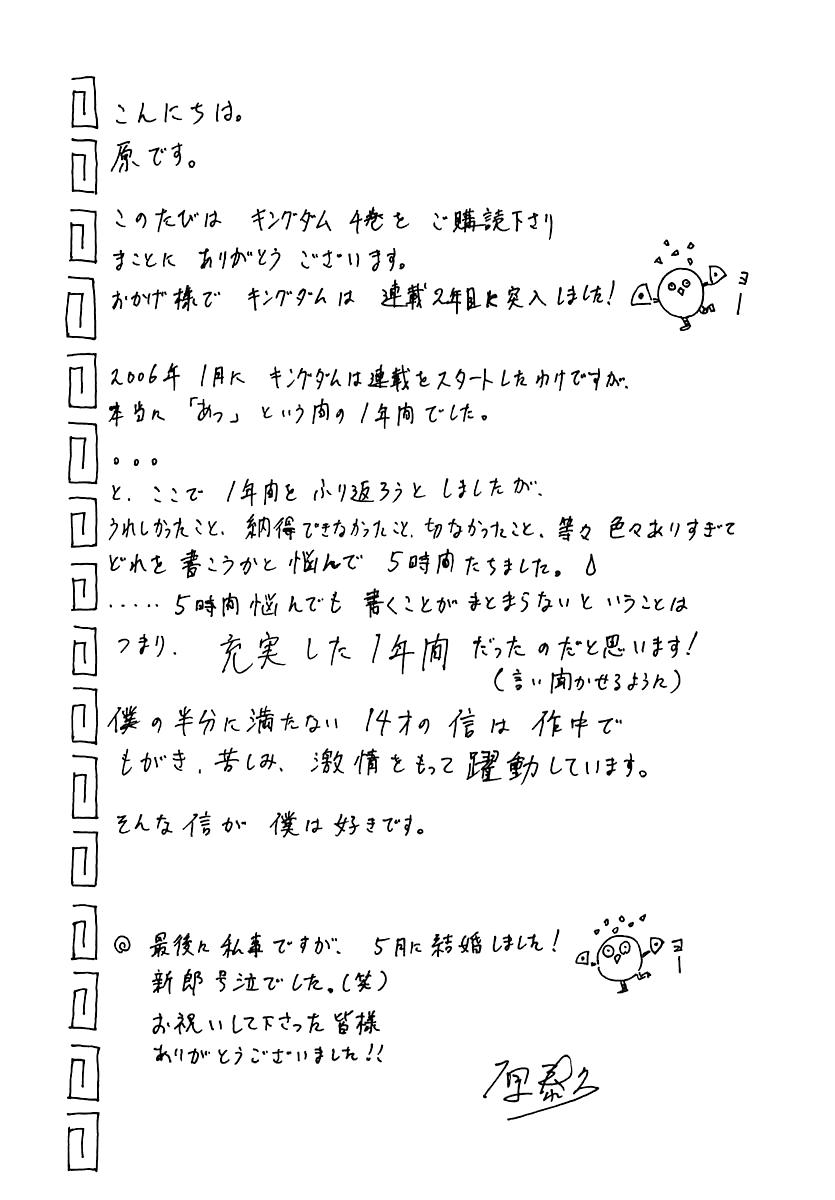 こんにちは。
原です。
このたびは キングダム 4巻を ご購読下さり
まことに ありがとう ございます。
おかげ様で キングダムは 連載2年目に突入しました!
ヨー
2006年 1月に キングダムは連載をスタートしたわけですが、
本当に 「あっ」 という間の 1年間でした。
。。。
と、ここで 1年間を ふり返ろうと しましたが、
うれしかったこと、納得できなかったこと、切なかったこと、等々 色々ありすぎて
どれを 書こうかと 悩んで 5時間たちました。
‥‥‥5時間 悩んでも 書くことが まとまらないと いうことは
つまり、 充実した1年間 だったのだと思います!
(言い聞かせるように)
僕の半分に満たない 14才の 信は 作中で
もがき、苦しみ、激情をもって躍動しています。
そんな 信が 僕は好きです。
◎ 最後に 私事ですが、 5月に結婚しました!
ヨー
新郎号泣でした。(笑)
お祝いして下さった皆様
ありがとうございました!!
原泰久